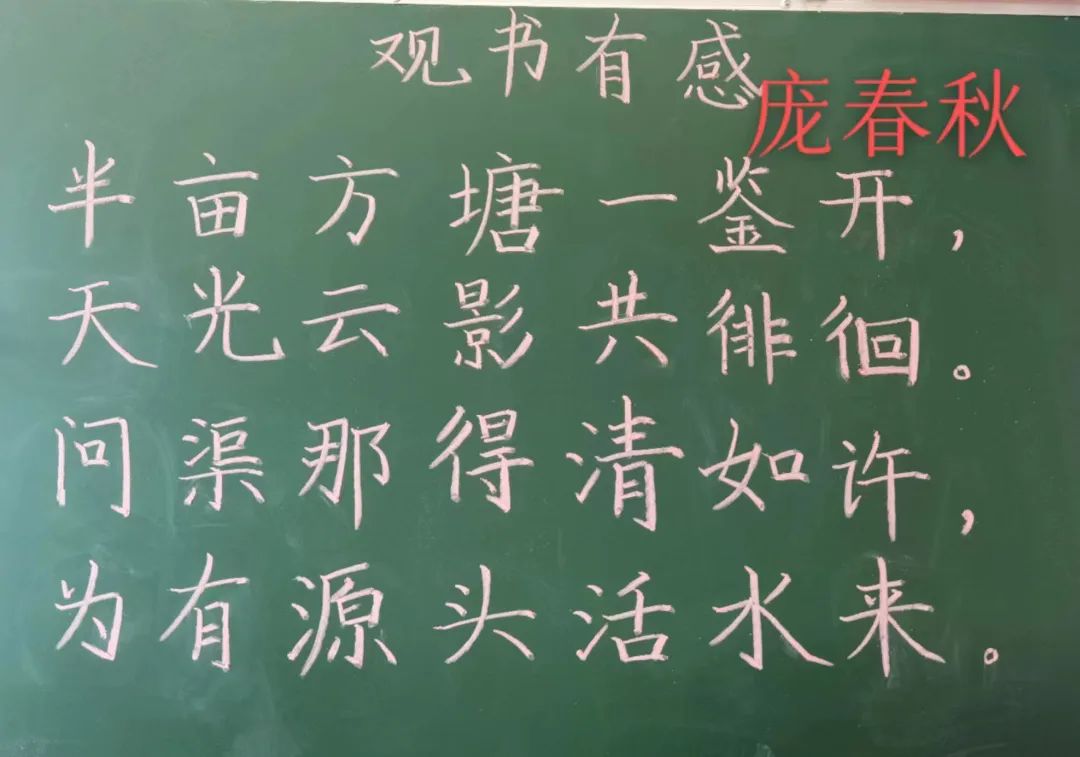 观书有感
庞春秋
半亩方塘一鉴开，
天光云影共徘徊。
问渠那得清如许，
为有源头活水来。